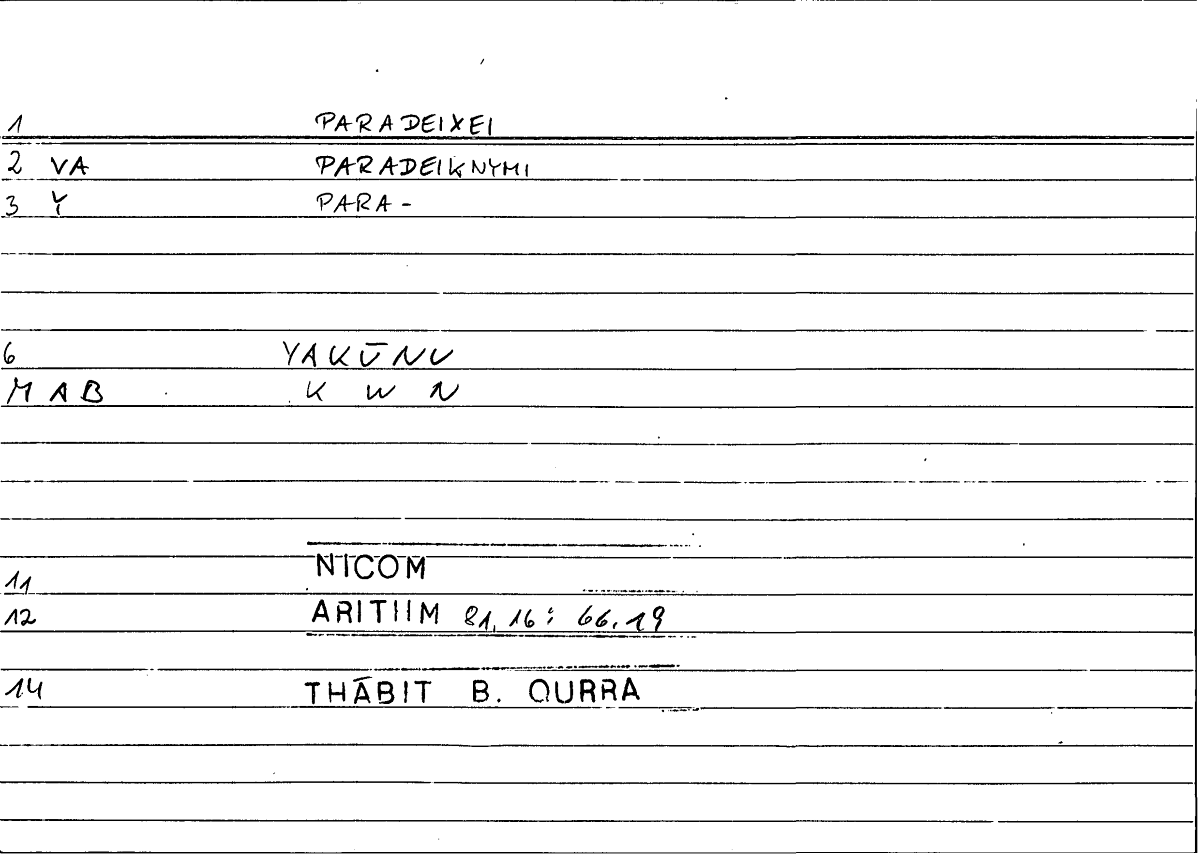 1 PARADEIXEI
2 VA PARADEIKNYMI
3 Y PARA-
6 YAKŪNU
M A B K W N
11 NICOM
12 ARITIIM 81,16: 66.19
14 THĀBIT B. QURRA